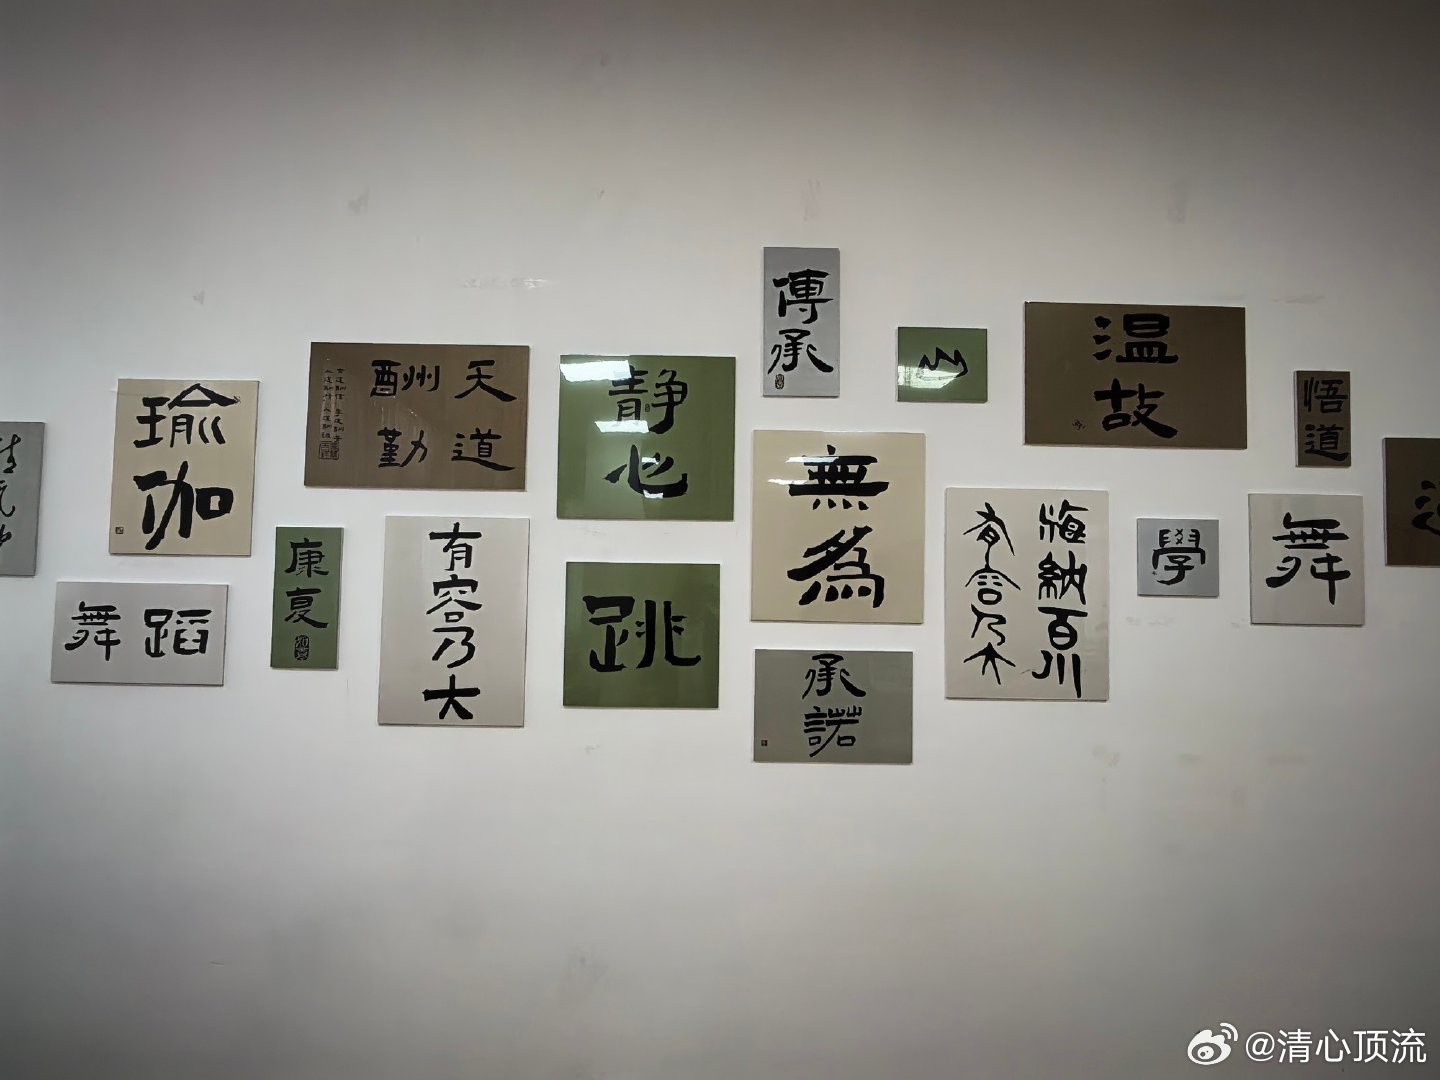 瑜伽
舞蹈
天道
酬勤
康夏
有容乃大
静心
跳
傳承
無為
承諾
山
海納百川
有容乃大
温故
學
悟道
舞
@清心顶流